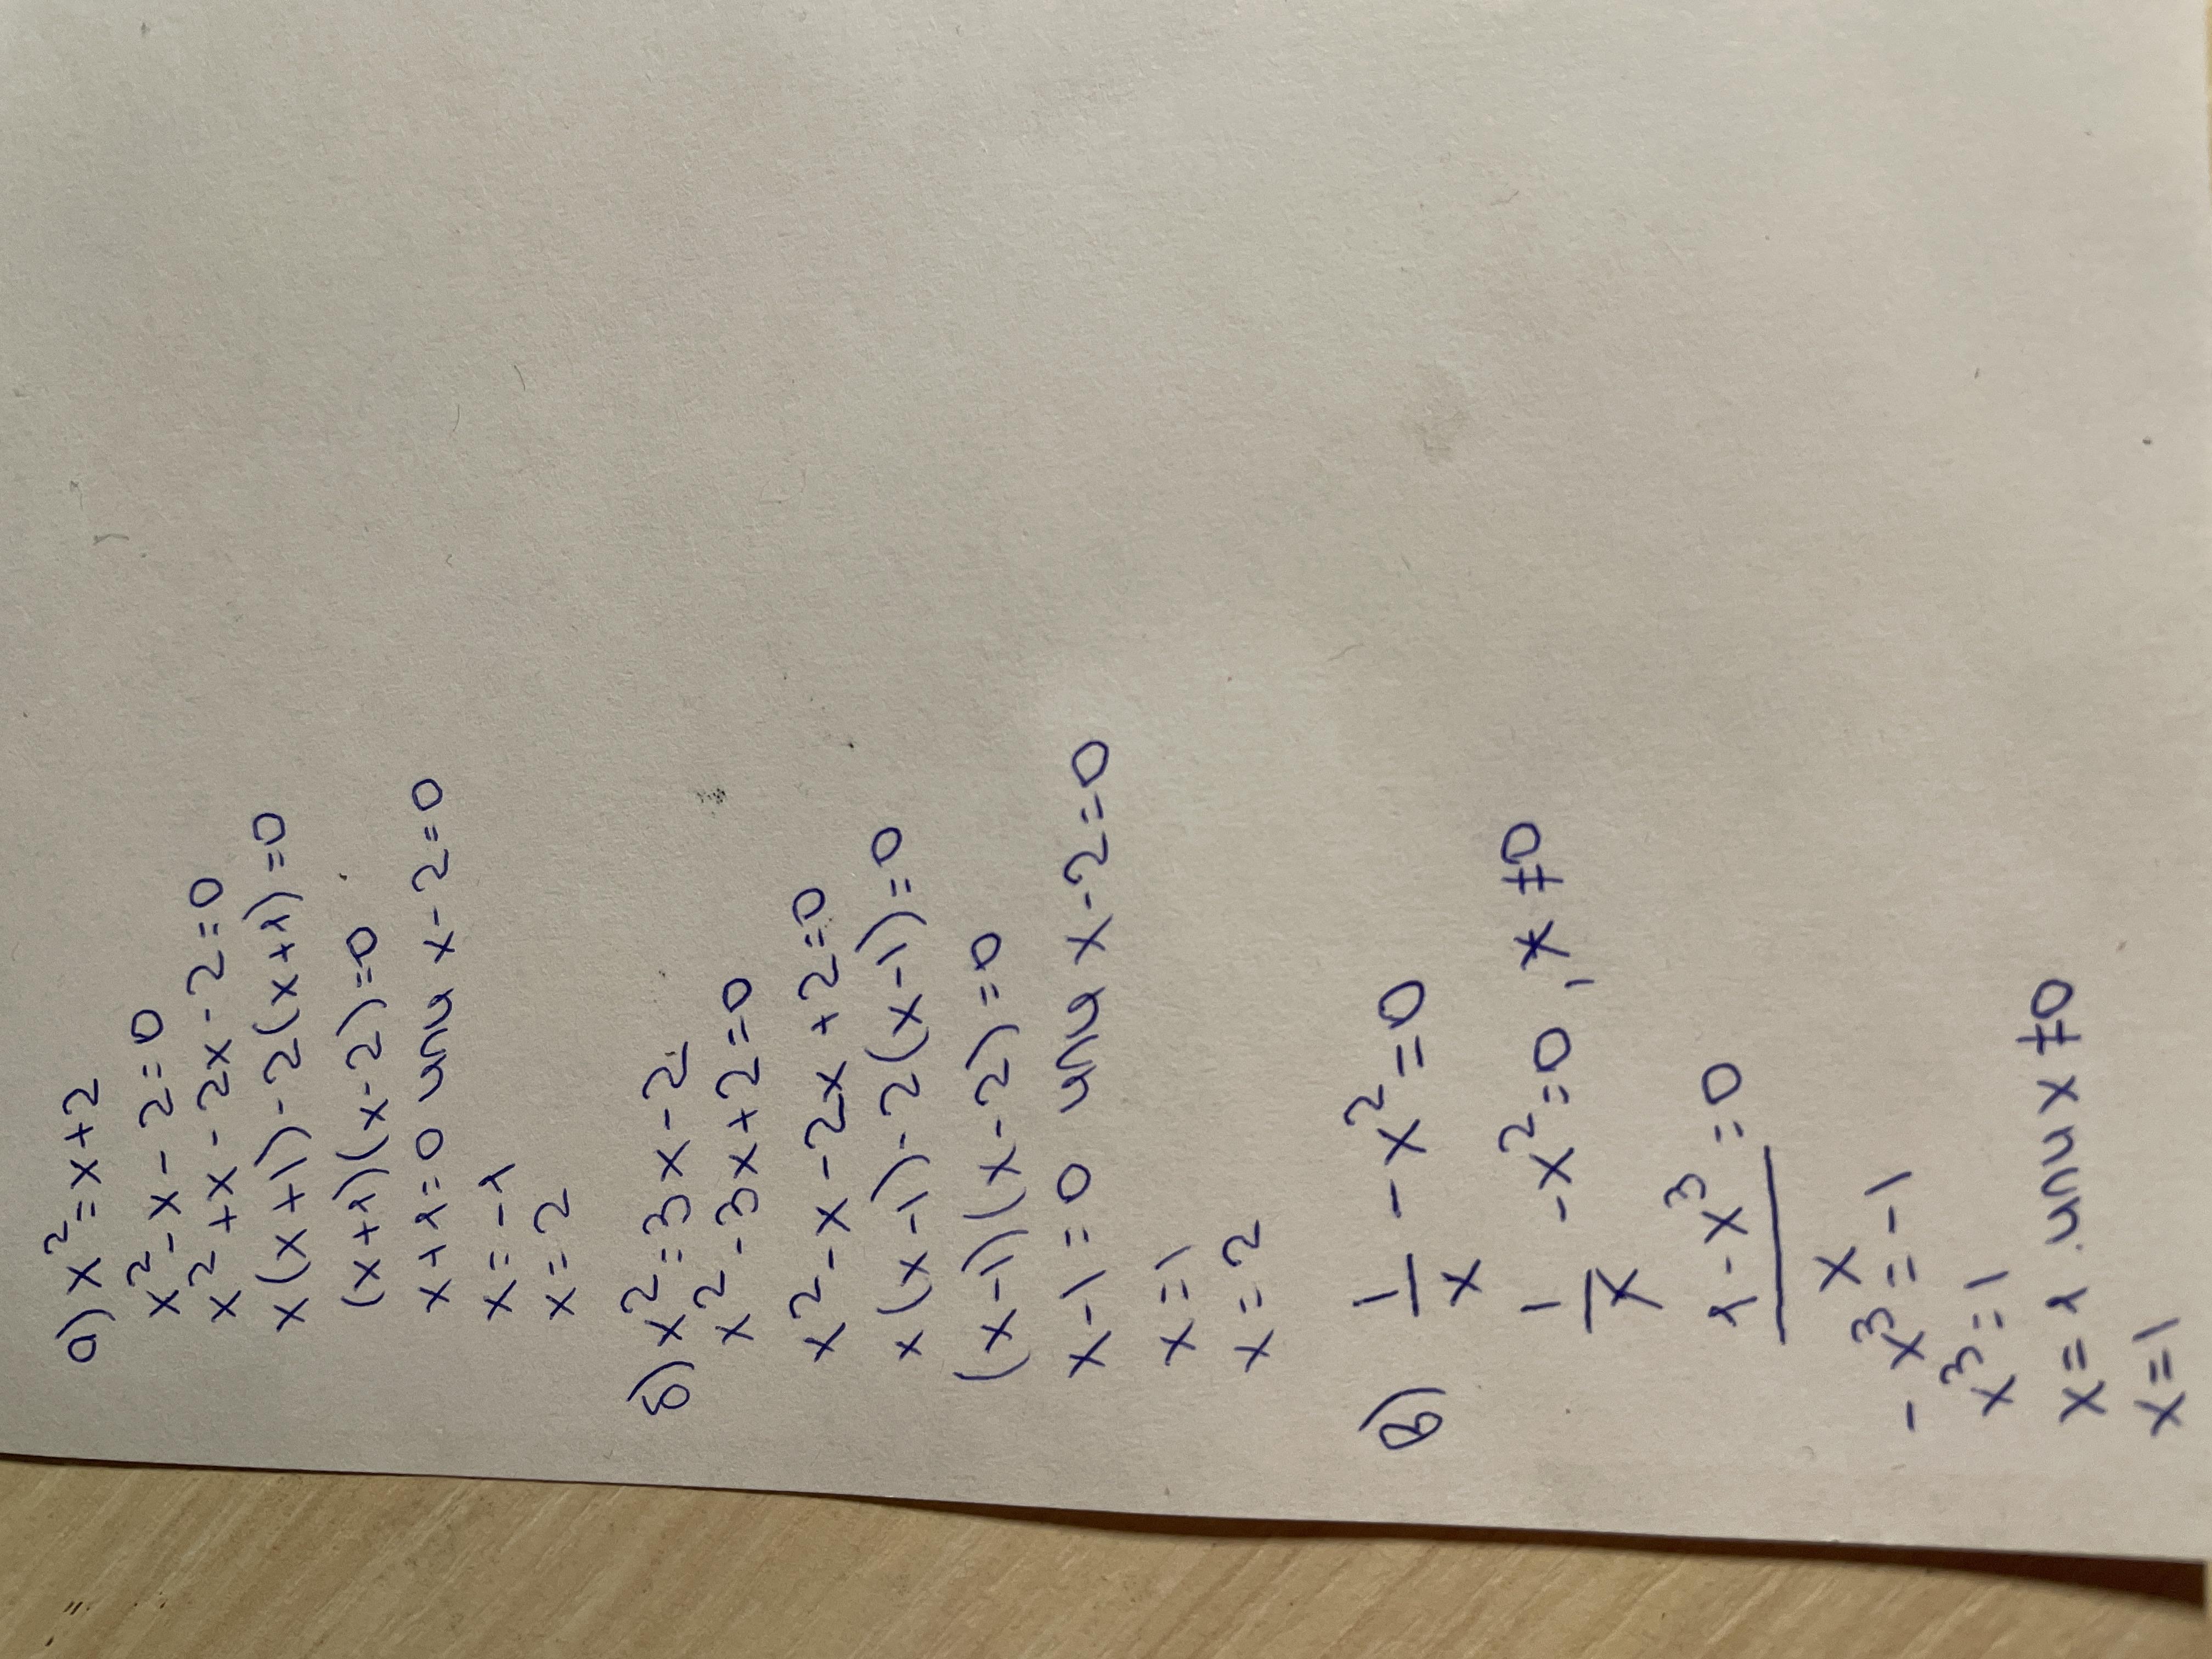 а) x²=x+2
x²-x-2=0
x²+x-2x-2=0
x(x+1)-2(x+1)=0
(x+1)(x-2)=0
x+1=0 или x-2=0
x=-1
x=2
б) x²=3x-2
x²-3x+2=0
x²-x-2x+2=0
x(x-1)-2(x-1)=0
(x-1)(x-2)=0
x-1=0 или x-2=0
x=1
x=2
в) 1/x - x²=0
1/x - x²=0, x≠0
1-x³/x =0
-x³=-1
x³=1
x=1 или x≠0
x=1